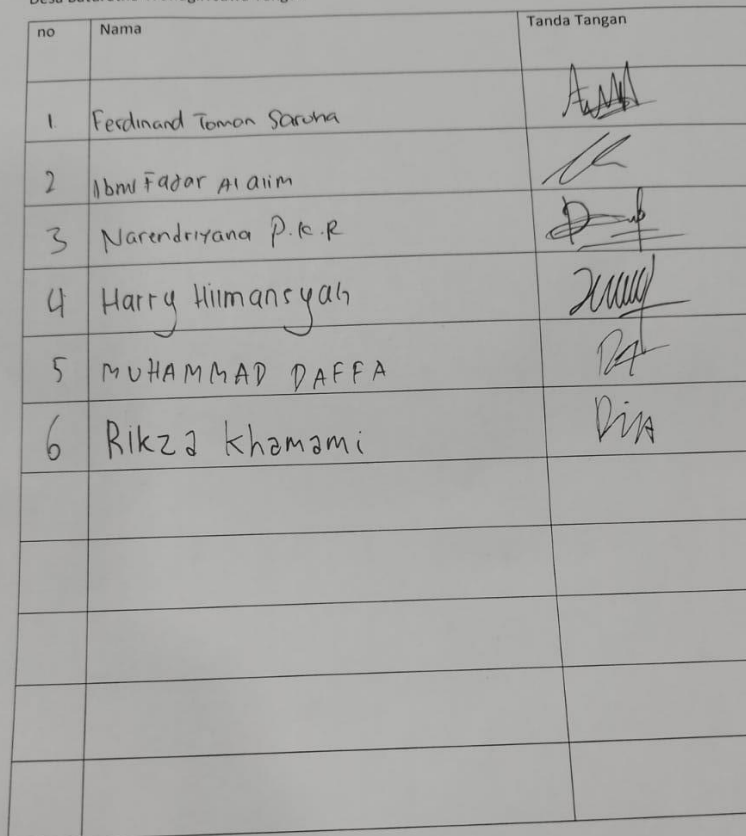 no Nama Tanda Tangan
1 Ferdinand Tomon Saruha
2 Ibnu Fadar Al alim
3 Narendriyana P.K.R
4 Harry Hilmansyah
5 MUHAMMAD DAFFA
6 Rikza Khamami